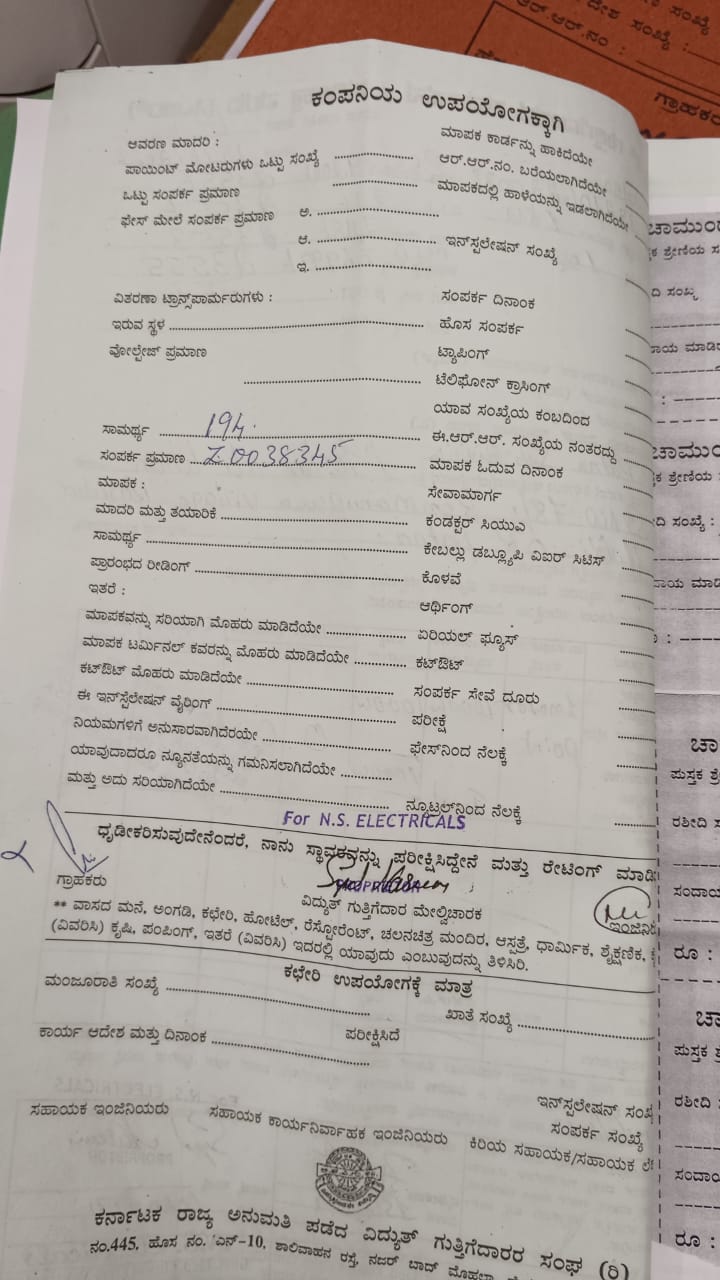 ಕಂಪನಿಯ ಉಪಯೋಗಕ್ಕಾಗಿ
ಆವರಣ ಮಾದರಿ :
ಪಾಯಿಂಟ್ ಮೋಟರುಗಳು ಒಟ್ಟು ಸಂಖ್ಯೆ
ಒಟ್ಟು ಸಂಪರ್ಕ ಪ್ರಮಾಣ
ಫೇಸ್ ಮೇಲೆ ಸಂಪರ್ಕ ಪ್ರಮಾಣ ಅ.
ಆ.
ಇ.
ವಿತರಣಾ ಟ್ರಾನ್ಸ್‌ಪಾರ್ಮರುಗಳು :
ಇರುವ ಸ್ಥಳ
ವೋಲ್ಟೇಜ್ ಪ್ರಮಾಣ
ಸಾಮರ್ಥ್ಯ 194.
ಸಂಪರ್ಕ ಪ್ರಮಾಣ Z0038345
ಮಾಪಕ :
ಮಾದರಿ ಮತ್ತು ತಯಾರಿಕೆ
ಸಾಮರ್ಥ್ಯ
ಪ್ರಾರಂಭದ ರೀಡಿಂಗ್
ಇತರೆ :
ಮಾಪಕವನ್ನು ಸರಿಯಾಗಿ ಮೊಹರು ಮಾಡಿದೆಯೇ
ಮಾಪಕ ಟರ್ಮಿನಲ್ ಕವರನ್ನು ಮೊಹರು ಮಾಡಿದೆಯೇ
ಕಟ್‌ಔಟ್ ಮೊಹರು ಮಾಡಿದೆಯೇ
ಈ ಇನ್‌ಸ್ಪೆಲೇಷನ್ ವೈರಿಂಗ್
ನಿಯಮಗಳಿಗೆ ಅನುಸಾರವಾಗಿದೆರಯೇ
ಯಾವುದಾದರೂ ನ್ಯೂನತೆಯನ್ನು ಗಮನಿಸಲಾಗಿದೆಯೇ
ಮತ್ತು ಅದು ಸರಿಯಾಗಿದೆಯೇ
ಮಾಪಕ ಕಾರ್ಡನ್ನು ಹಾಕಿದೆಯೇ
ಆರ್.ಆರ್.ನಂ. ಬರೆಯಲಾಗಿದೆಯೇ
ಮಾಪಕದಲ್ಲಿ ಹಾಳೆಯನ್ನು ಇಡಲಾಗಿದೆಯೇ
ಇನ್‌ಸ್ಪಲೇಷನ್ ಸಂಖ್ಯೆ
ಸಂಪರ್ಕ ದಿನಾಂಕ
ಹೊಸ ಸಂಪರ್ಕ
ಟ್ಯಾಪಿಂಗ್
ಟೆಲಿಫೋನ್ ಕ್ರಾಸಿಂಗ್
ಯಾವ ಸಂಖ್ಯೆಯ ಕಂಬದಿಂದ
ಈ.ಆರ್.ಆರ್. ಸಂಖ್ಯೆಯ ನಂತರದ್ದು
ಮಾಪಕ ಓದುವ ದಿನಾಂಕ
ಸೇವಾಮಾರ್ಗ
ಕಂಡಕ್ಟರ್ ಸಿಯುಎ
ಕೇಬಲ್ಲು ಡಬ್ಲ್ಯೂಪಿ ವಿಐರ್ ಸಿಟಿಸ್
ಕೊಳವೆ
ಆರ್ಥಿಂಗ್
ಏರಿಯಲ್ ಫ್ಯೂಸ್
ಕಟ್‌ಔಟ್
ಸಂಪರ್ಕ ಸೇವೆ ದೂರು
ಪರೀಕ್ಷೆ
ಫೇಸ್‌ನಿಂದ ನೆಲಕ್ಕೆ
ನ್ಯೂಟ್ರಲ್‌ನಿಂದ ನೆಲಕ್ಕೆ
For N.S. ELECTRICALS
ಧೃಡೀಕರಿಸುವುದೇನೆಂದರೆ, ನಾನು ಸ್ಥಾವರವನ್ನು ಪರೀಕ್ಷಿಸಿದ್ದೇನೆ ಮತ್ತು ರೇಟಿಂಗ್ ಮಾಡಿ
ಗ್ರಾಹಕರು
ವಿದ್ಯುತ್ ಗುತ್ತಿಗೆದಾರ ಮೇಲ್ವಿಚಾರಕ
ಇಂಜಿನಿ
** ವಾಸದ ಮನೆ, ಅಂಗಡಿ, ಕಛೇರಿ, ಹೋಟೆಲ್, ರೆಸ್ಟೋರೆಂಟ್, ಚಲನಚಿತ್ರ ಮಂದಿರ, ಆಸ್ಪತ್ರೆ, ಧಾರ್ಮಿಕ, ಶೈಕ್ಷಣಿಕ,
(ವಿವರಿಸಿ) ಕೃಷಿ, ಪಂಪಿಂಗ್, ಇತರೆ (ವಿವರಿಸಿ) ಇದರಲ್ಲಿ ಯಾವುದು ಎಂಬುವುದನ್ನು ತಿಳಿಸಿರಿ.
ಕಛೇರಿ ಉಪಯೋಗಕ್ಕೆ ಮಾತ್ರ
ಮಂಜೂರಾತಿ ಸಂಖ್ಯೆ
ಖಾತೆ ಸಂಖ್ಯೆ
ಕಾರ್ಯ ಆದೇಶ ಮತ್ತು ದಿನಾಂಕ
ಪರೀಕ್ಷಿಸಿದೆ
ಇನ್‌ಸ್ಪಲೇಷನ್ ಸಂಖ್ಯೆ
ಸಂಪರ್ಕ ಸಂಖ್ಯೆ
ಸಹಾಯಕ ಇಂಜಿನಿಯರು ಸಹಾಯಕ ಕಾರ್ಯನಿರ್ವಾಹಕ ಇಂಜಿನಿಯರು ಕಿರಿಯ ಸಹಾಯಕ/ಸಹಾಯಕ ಲೆ
ಕರ್ನಾಟಕ ರಾಜ್ಯ ಅನುಮತಿ ಪಡೆದ ವಿದ್ಯುತ್ ಗುತ್ತಿಗೆದಾರರ ಸಂಘ (ರಿ)
ನಂ.445, ಹೊಸ ನಂ. ಎನ್-10, ಶಾಲಿವಾಹನ ರಸ್ತೆ, ನಜರ್ ಬಾದ್ ಮೊಹಲ್ಲಾ